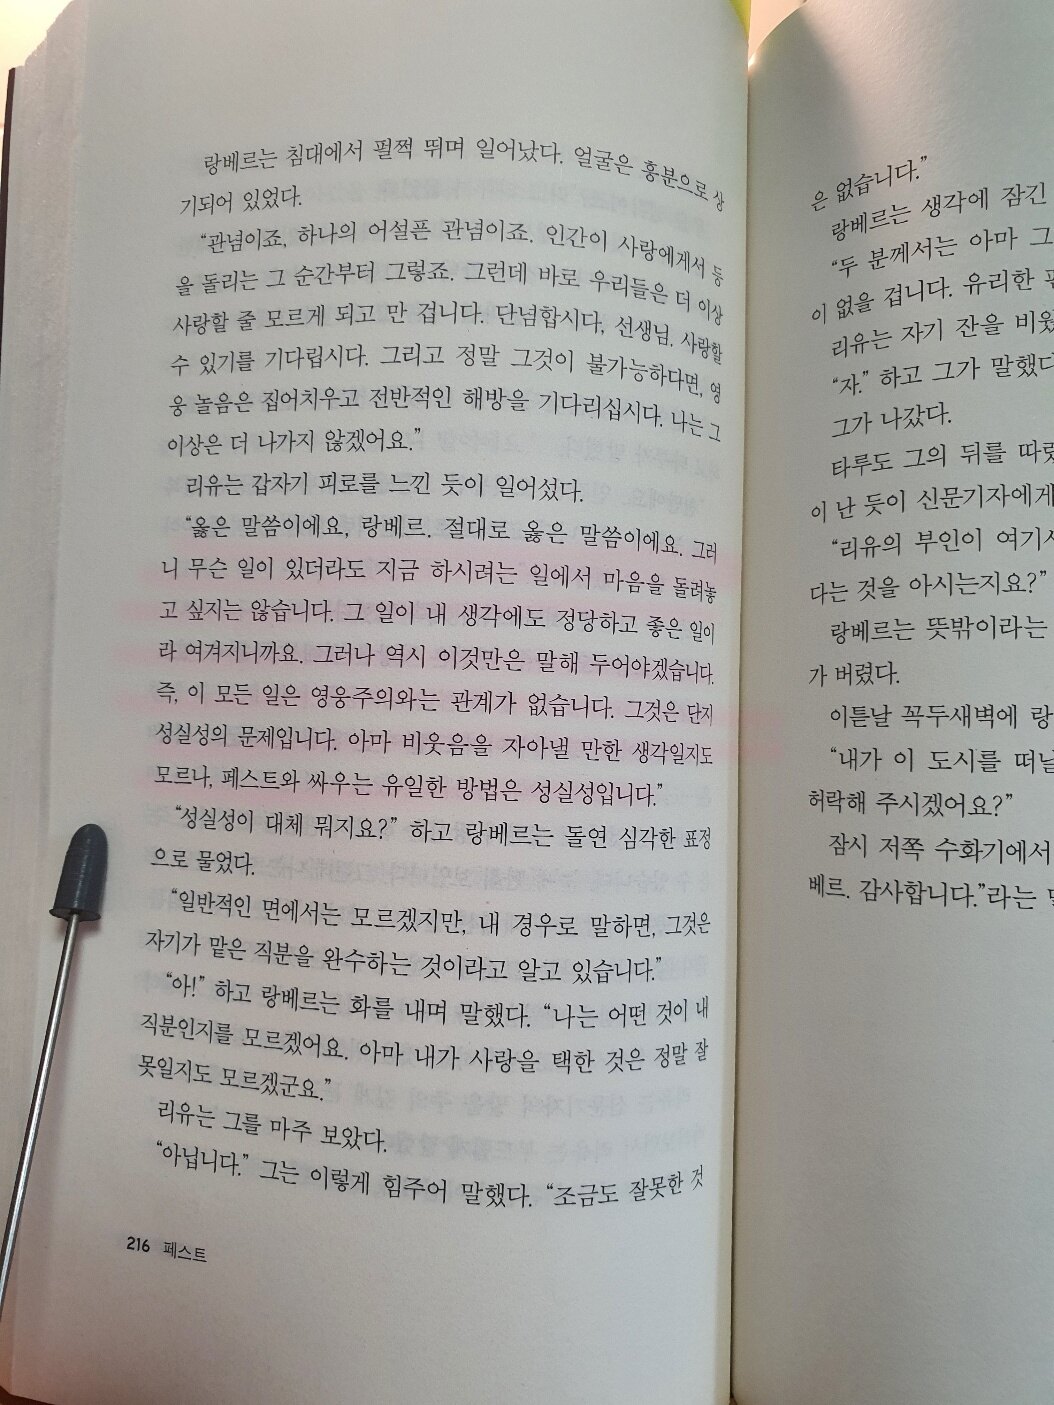 랑베르는 침대에서 펄쩍 뛰며 일어났다. 얼굴은 흥분으로 상
기되어 있었다.
“관념이죠, 하나의 어설픈 관념이죠. 인간이 사랑에게서 등
을 돌리는 그 순간부터 그렇죠. 그런데 바로 우리들은 더 이상
사랑할 줄 모르게 되고 만 겁니다. 단념합시다, 선생님. 사랑할
수 있기를 기다립시다. 그리고 정말 그것이 불가능하다면, 영
웅 놀음은 집어치우고 전반적인 해방을 기다리십시다. 나는 그
이상은 더 나가지 않겠어요.”
리유는 갑자기 피로를 느낀 듯이 일어섰다.
“옳은 말씀이에요, 랑베르. 절대로 옳은 말씀이에요. 그러
니 무슨 일이 있더라도 지금 하시려는 일에서 마음을 돌려놓
고 싶지는 않습니다. 그 일이 내 생각에도 정당하고 좋은 일이
라 여겨지니까요. 그러나 역시 이것만은 말해 두어야겠습니다.
즉, 이 모든 일은 영웅주의와는 관계가 없습니다. 그것은 단지
성실성의 문제입니다. 아마 비웃음을 자아낼 만한 생각일지도
모르나, 페스트와 싸우는 유일한 방법은 성실성입니다.”
“성실성이 대체 뭐지요?” 하고 랑베르는 돌연 심각한 표정
으로 물었다.
“일반적인 면에서는 모르겠지만, 내 경우로 말하면, 그것은
자기가 맡은 직분을 완수하는 것이라고 알고 있습니다.”
“아!” 하고 랑베르는 화를 내며 말했다. “나는 어떤 것이 내
직분인지를 모르겠어요. 아마 내가 사랑을 택한 것은 정말 잘
못일지도 모르겠군요.”
리유는 그를 마주 보았다.
“아닙니다.” 그는 이렇게 힘주어 말했다. “조금도 잘못한 것
216 페스트
은 없습니다.”
랑베르는 생각에 잠긴
“두 분께서는 아마 그
이 없을 겁니다. 유리한
리유는 자기 잔을 비웠
“자.” 하고 그가 말했다
그가 나갔다.
타루도 그의 뒤를 따랐
이 난 듯이 신문기자에게
“리유의 부인이 여기서
다는 것을 아시는지요?”
랑베르는 뜻밖이라는
가 버렸다.
이튿날 꼭두새벽에 랑
“내가 이 도시를 떠날
허락해 주시겠어요?”
잠시 저쪽 수화기에서
베르. 감사합니다.”라는